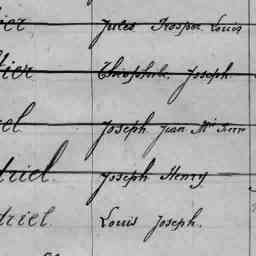 ier Jules Prosper Louis
lier Théophile Joseph
el Joseph Jean Mie
driel Joseph Henry
driel Louis Joseph.